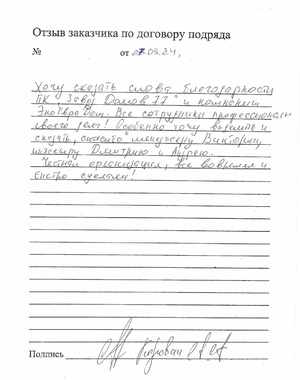 Отзыв заказчика по договору подряда
№ от 07.03.24,
Хочу сказать слова благодарности
ПК "Завод Домов 77" и компании
Все сотрудники профессионалы
своего дела! Особенно хочу выделить и
сказать "спасибо" менеджеру Виктории,
инженеру Дмитрию и Андрею.
Четкой организации, все вовремя и
быстро сделали!
Подпись